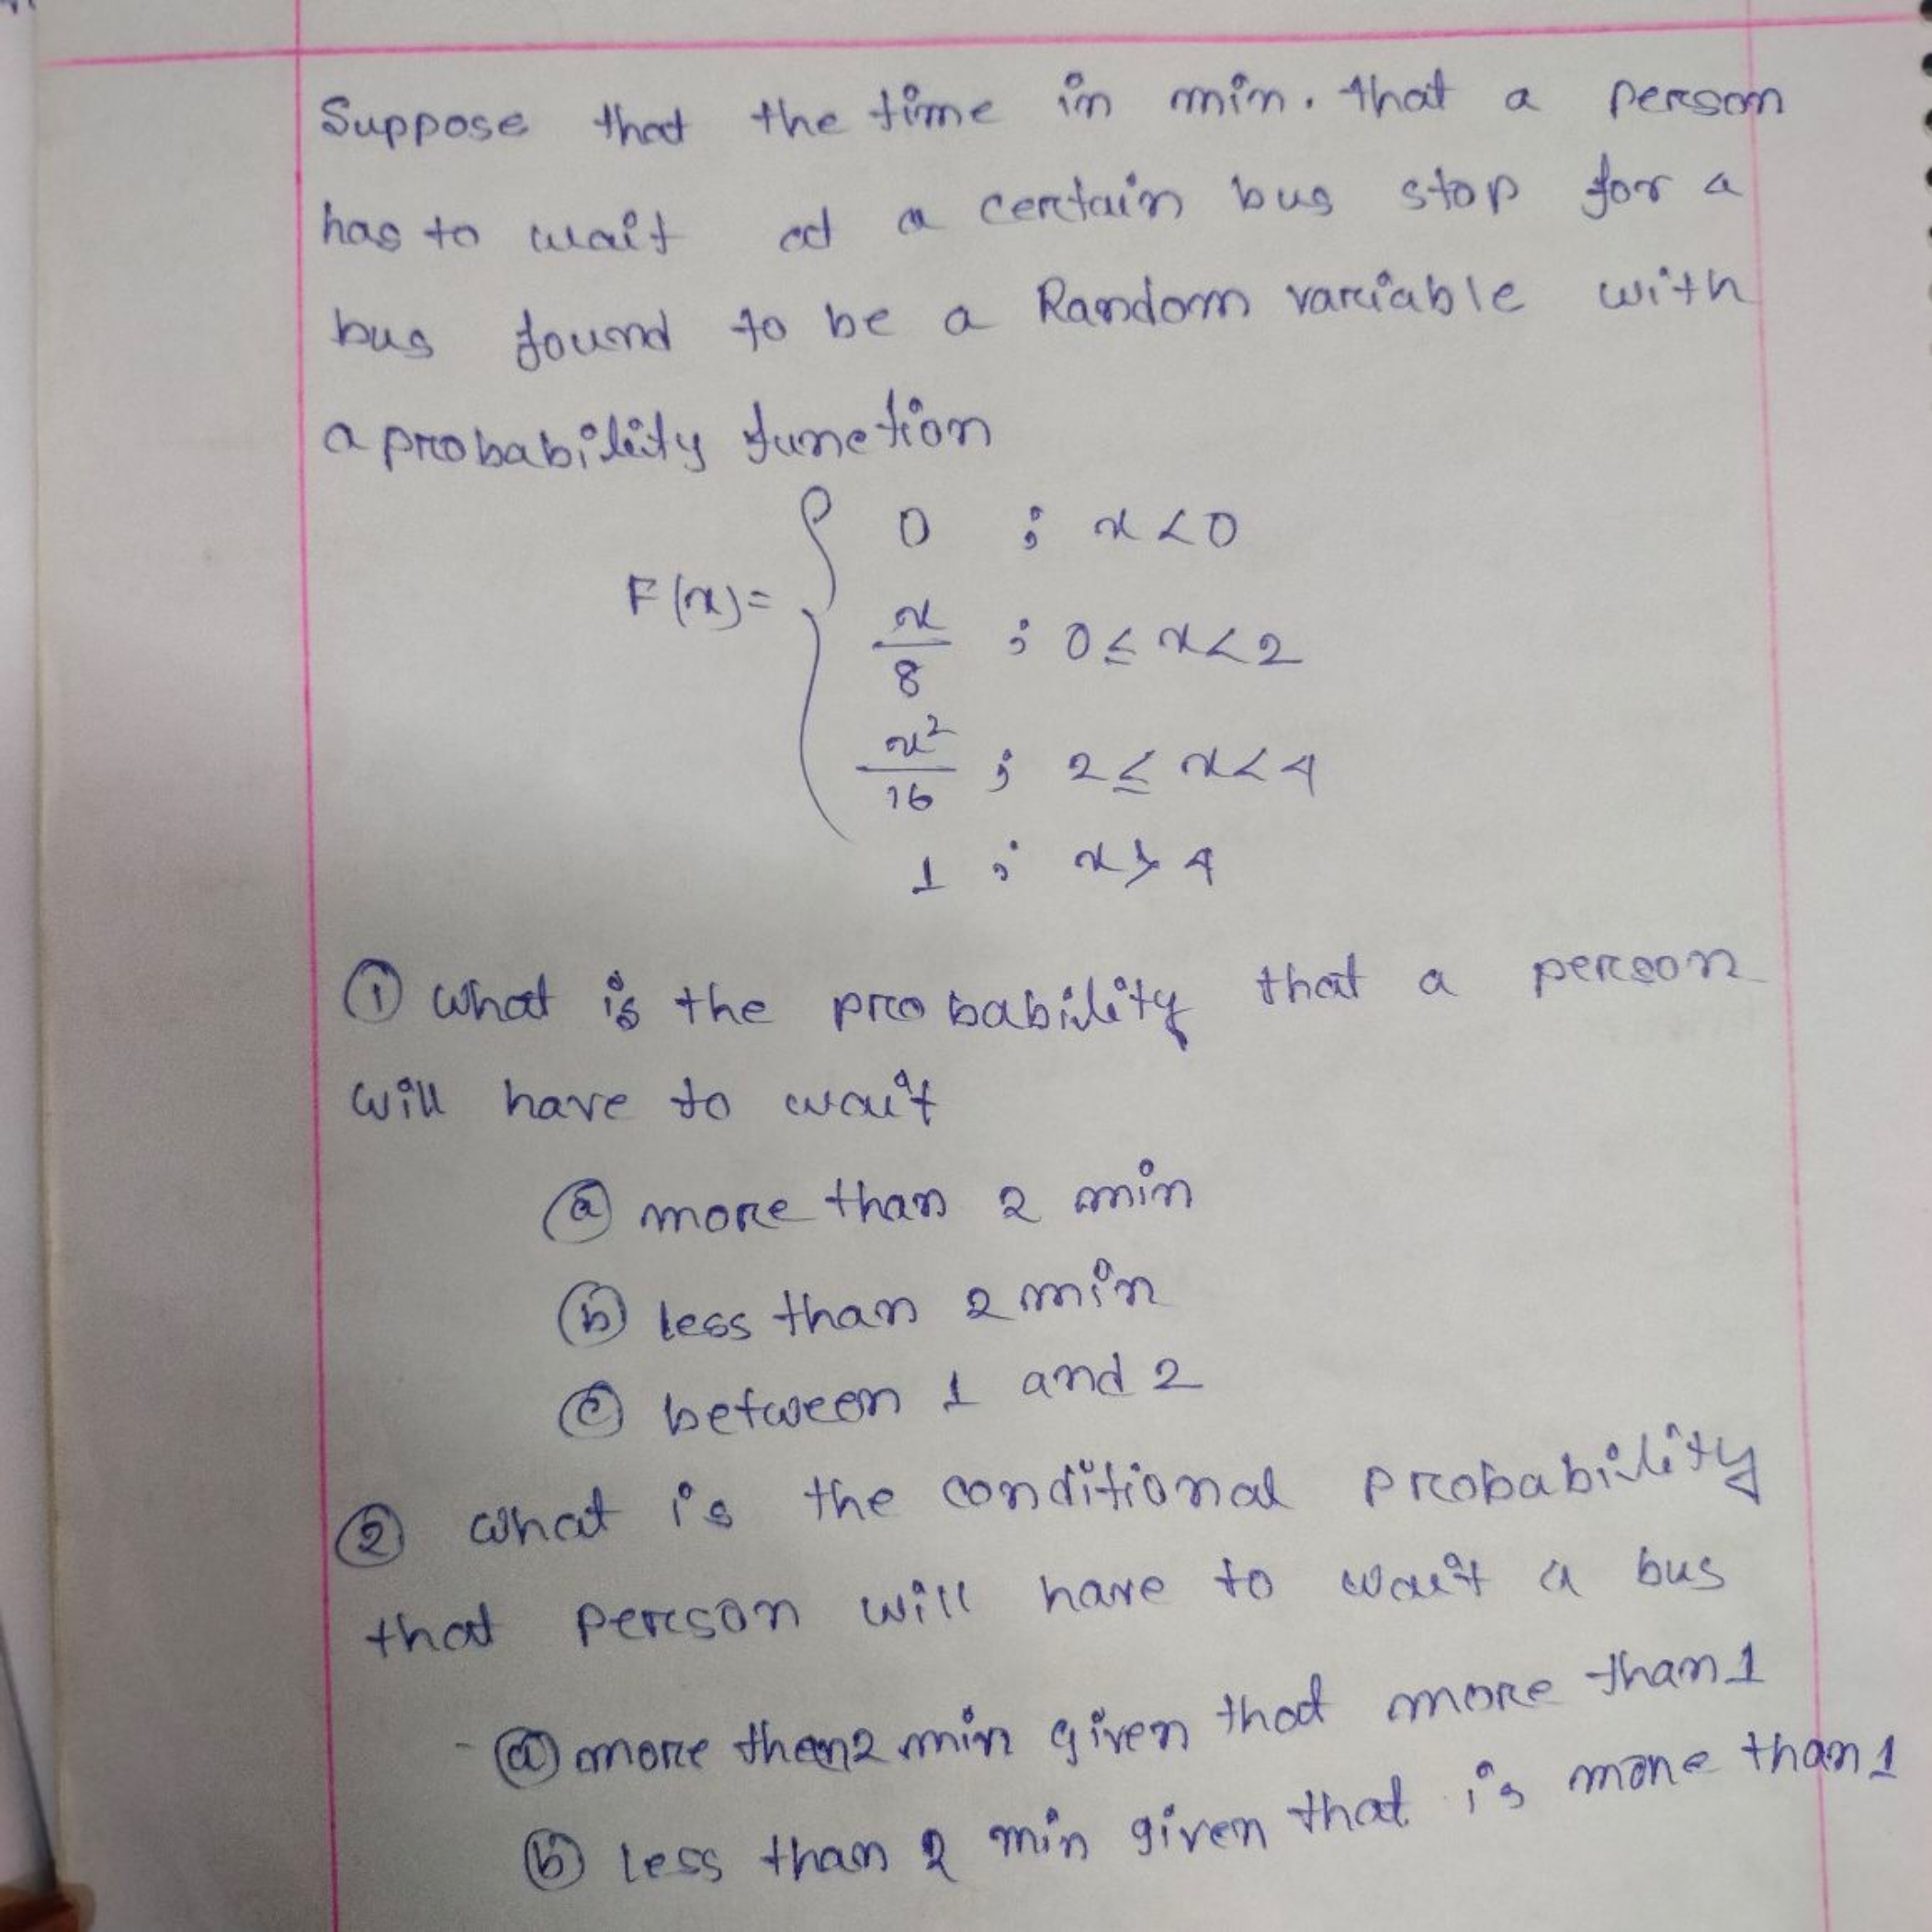 Suppose that the time in min. that a person
has to wait at a certain bus stop for a
bus found to be a Random variable with
a probability function
F(x) = { 0 ; x < 0
x/8 ; 0 ≤ x < 2
x²/16 ; 2 ≤ x < 4
1 ; x > 4
① what is the probability that a person
will have to wait
ⓐ more than 2 min
ⓑ less than 2 min
ⓒ between 1 and 2
② what is the conditional probability
that person will have to wait a bus
- ⓐ more than 2 min given that more than 1
ⓑ less than 2 min given that is more than 1